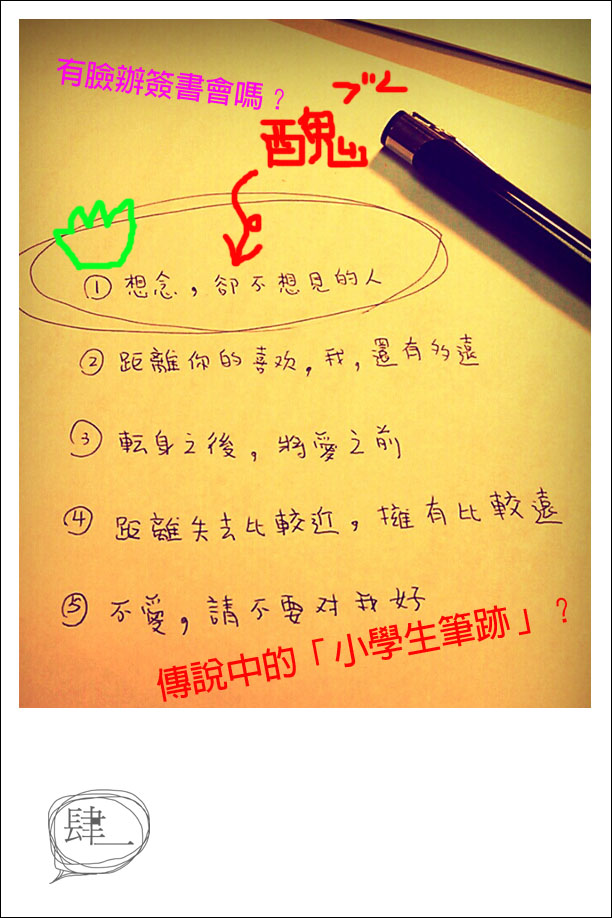 有臉辦簽書會嗎？
醜
① 想念，卻不想見的人
② 距離你的喜欢，我，還有多遠
③ 転身之後，将愛之前
④ 距離失去比較近，擁有比較遠
⑤ 不愛，請不要对我好
傳說中的「小學生筆跡」？
肆一